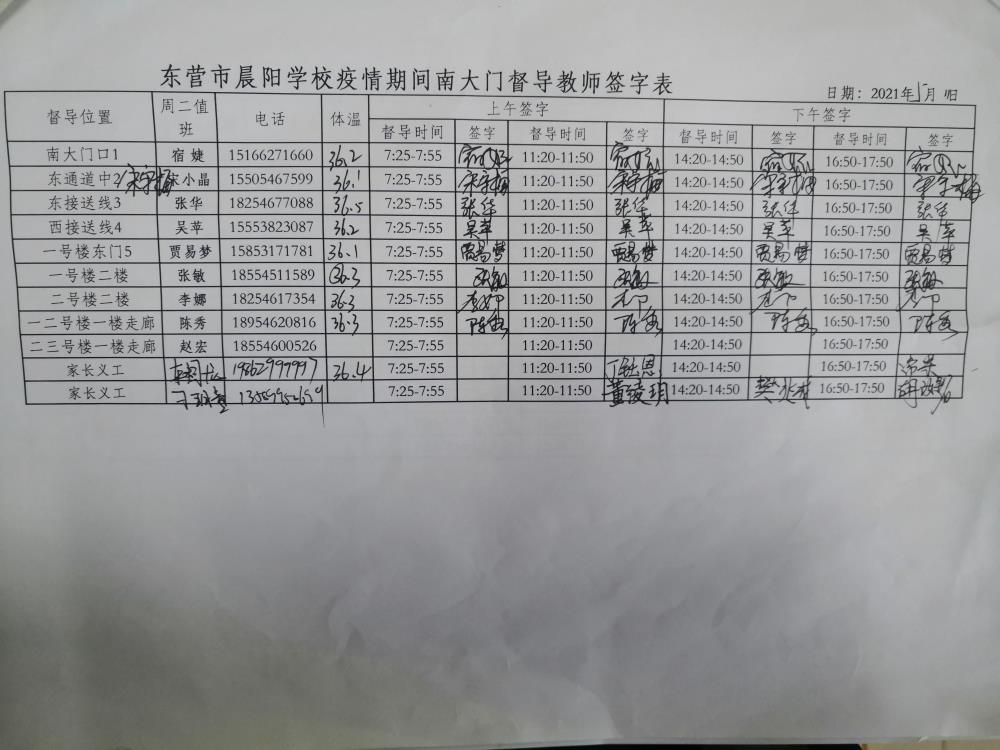 东营市晨阳学校疫情期间南大门督导教师签字表
日期：2021年5月 日
督导位置 周二值班 电话 体温 上午签字 下午签字
督导时间 签字 督导时间 签字 督导时间 签字 督导时间 签字
南大门口1 宿婕 15166271660 36.2 7:25-7:55 11:20-11:50 14:20-14:50 16:50-17:50
东通道中2 宋小晶 15505467599 36.1 7:25-7:55 11:20-11:50 14:20-14:50 16:50-17:50
东接送线3 张华 18254677088 36.5 7:25-7:55 张华 11:20-11:50 张华 14:20-14:50 张华 16:50-17:50 张华
西接送线4 吴苹 15553823087 36.2 7:25-7:55 吴苹 11:20-11:50 吴苹 14:20-14:50 吴苹 16:50-17:50 吴苹
一号楼东门5 贾易梦 15853171781 36.1 7:25-7:55 贾易梦 11:20-11:50 贾易梦 14:20-14:50 贾易梦 16:50-17:50 贾易梦
一号楼二楼 张敏 18554511589 36.3 7:25-7:55 张敏 11:20-11:50 张敏 14:20-14:50 张敏 16:50-17:50 张敏
二号楼二楼 李娜 18254617354 36.3 7:25-7:55 李娜 11:20-11:50 14:20-14:50 16:50-17:50
一二号楼一楼走廊 陈秀 18954620816 36.3 7:25-7:55 陈秀 11:20-11:50 陈秀 14:20-14:50 陈秀 16:50-17:50 陈秀
二三号楼一楼走廊 赵宏 18554600526 7:25-7:55 11:20-11:50 14:20-14:50 16:50-17:50
家长义工 19862999997 36.4 7:25-7:55 11:20-11:50 14:20-14:50 16:50-17:50
家长义工 7:25-7:55 11:20-11:50 董绫玥 14:20-14:50 16:50-17:50